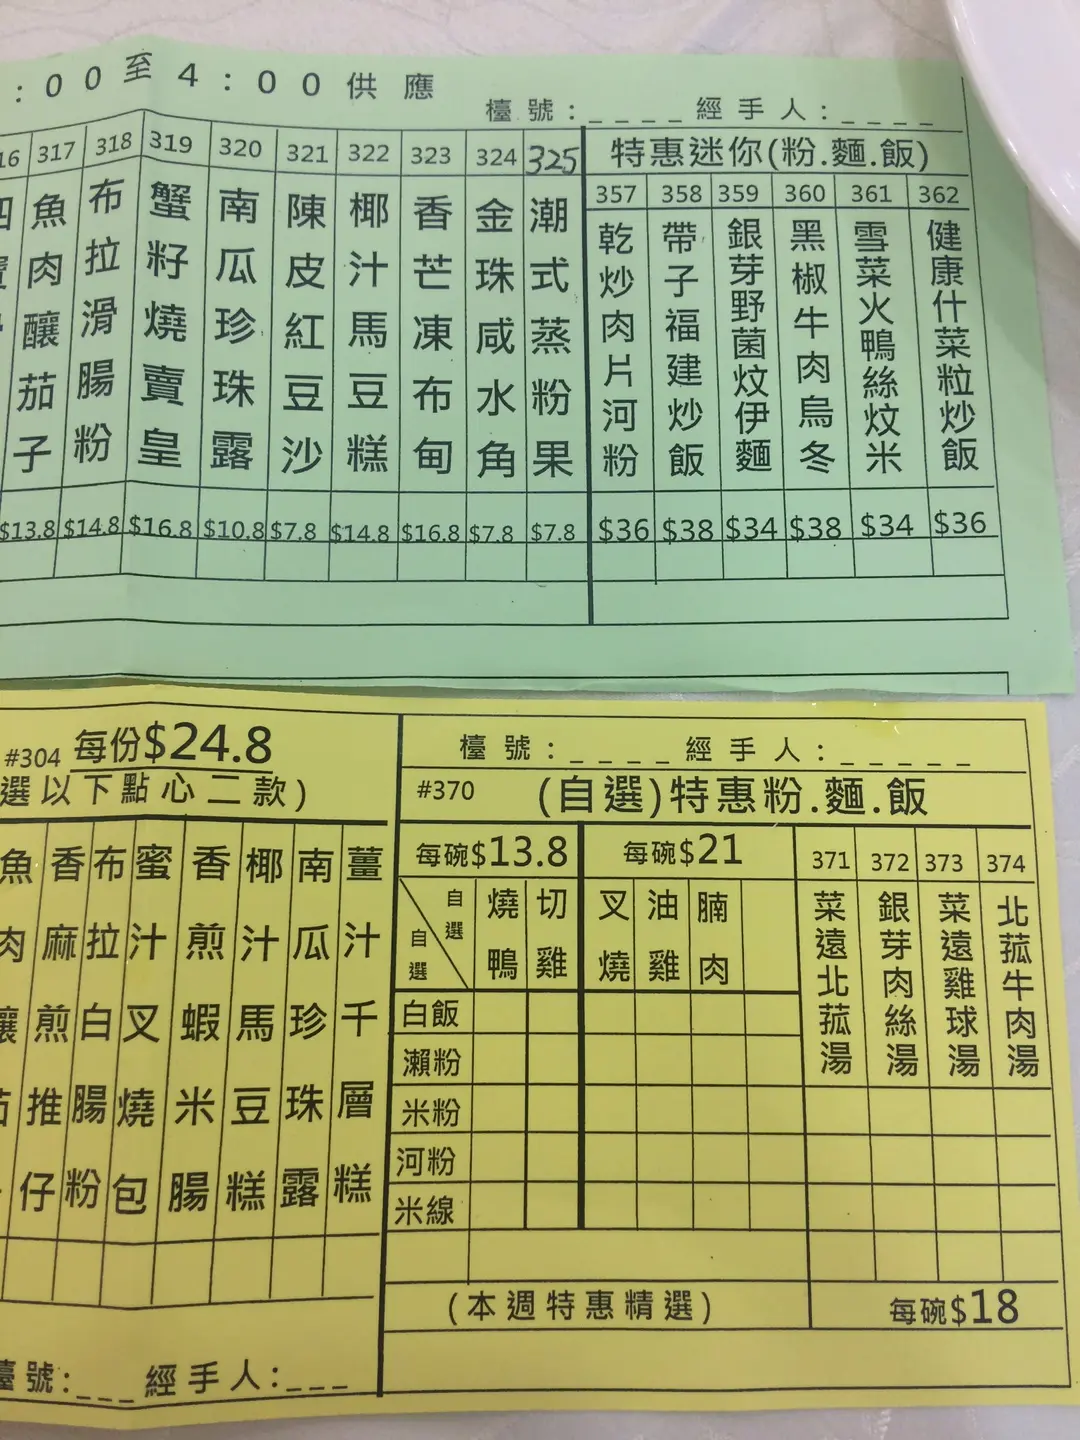 :00至4:00供應
檯號:____ 經手人:____
16 317 318 319 320 321 322 323 324 325
特惠迷你(粉.麵.飯)
357 358 359 360 361 362
魚肉釀茄子
布拉滑腸粉
蟹籽燒賣皇
南瓜珍珠露
陳皮紅豆沙
椰汁馬豆糕
香芒凍布甸
金珠咸水角
潮式蒸粉果
乾炒肉片河粉
帶子福建炒飯
銀芽野菌炆伊麵
黑椒牛肉烏冬
雪菜火鴨絲炆米
健康什菜粒炒飯
$13.8 $14.8 $16.8 $10.8 $7.8 $14.8 $16.8 $7.8 $7.8 $36 $38 $34 $38 $34 $36
#304 每份$24.8
選以下點心二款)
魚肉釀茄
香麻煎推仔
布拉白腸粉
蜜汁叉燒包
香煎蝦米腸
椰汁馬豆糕
南瓜珍珠露
薑汁千層糕
檯號:___ 經手人:___
檯號:____ 經手人:_____
#370 (自選)特惠粉.麵.飯
每碗$13.8 每碗$21 371 372 373 374
自選
自選
燒鴨
切雞
叉燒
油雞
腩肉
菜遠北菰湯
銀芽肉絲湯
菜遠雞球湯
北菰牛肉湯
白飯
瀨粉
米粉
河粉
米線
(本週特惠精選) 每碗$18